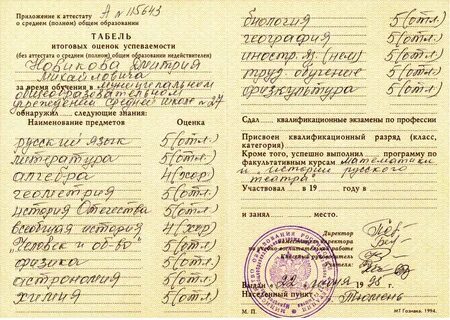 Приложение к аттестату А № 115643
о среднем (полном) общем образовании
ТАБЕЛЬ
итоговых оценок успеваемости
(без аттестата о среднем (полном) общем образовании недействителен)
Новикова Дмитрия
Михайловича
за время обучения в муниципальном
общеобразовательном
учреждении средней школе № 27
обнаружил следующие знания:
Наименование предметов Оценка
русский язык 5(отл.)
литература 5(отл.)
алгебра 4(хор)
геометрия 5(отл.)
история Отечества 5(отл.)
всеобщая история 4(хор)
"Человек и об-во" 5(отл.)
физика 5(отл.)
астрономия 5(отл.)
химия 5(отл.)
биология 5(отл.)
география 5(отл.)
иностр. яз (нем) 5(отл.)
труд. обучение 5(отл.)
физкультура 5(отл.)
Сдал квалификационные экзамены по профессии
Присвоен квалификационный разряд (класс,
категория)
Кроме того, успешно выполнил программу по
факультативным курсам математики
и "Истории русского
театра"
Участвовал в 19 году в
и занял место.
Директор
Заместитель директора
по учебно-воспитательной работе
Классный руководитель
Учителя:
Выдан 22 июня 1995 г.
Населенный пункт г. Тюмень
М. П.
МТ Гознака. 1994.